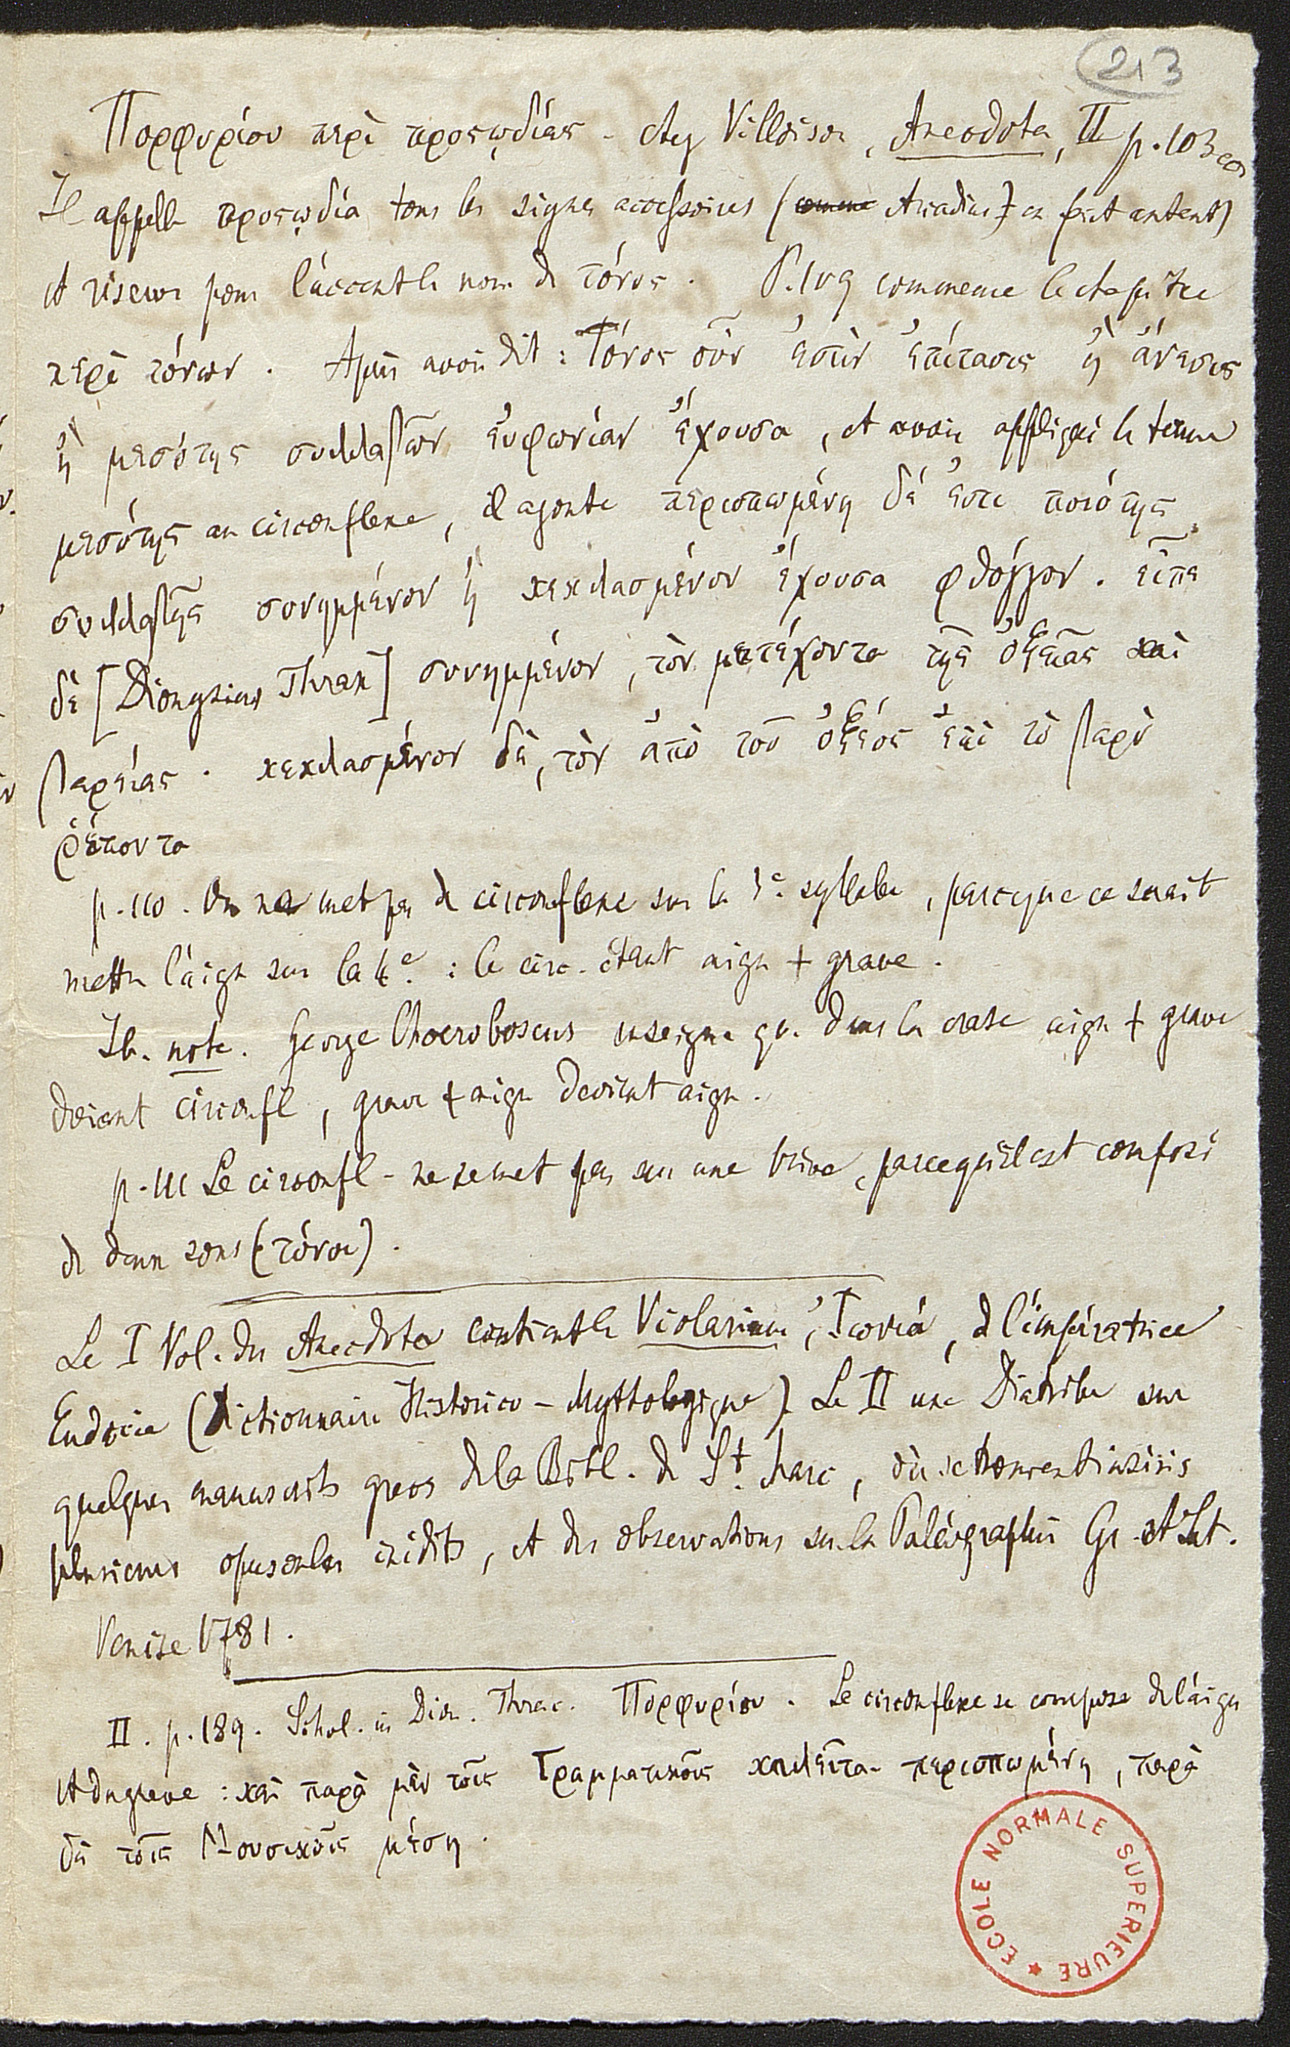 213
Πορφυρίου περὶ προσῳδίας - chez Villoison, Anecdota, II p. 103 sq
Il appelle προσῳδία tous les signes accessoires (comme Arcadius en fait autant)
et réserve pour l'accent le nom de τόνος. P. 109 commence le chapitre
περὶ τόνων. Après avoir dit : Τόνος οὖν ἐστὶν ἐπίτασις ἢ ἄνεσις
ἢ μεσότης συλλαβῶν εὐφωνίαν ἔχουσα, et avoir appliqué le terme
μεσότης au circonflexe, il ajoute περισπωμένη δέ ἐστι ποιότης
συλλαβῆς συνημμένον ἢ κεκλασμένον ἔχουσα φθόγγον. εἶπε
δὲ [Dionysius Thrax] συνημμένον, τὸν μετέχοντα τῆς ὀξείας καὶ
βαρείας. κεκλασμένον δὲ, τὸν ἀπὸ τοῦ ὀξέος ἐπὶ τὸ βαρὺ
ῥέποντα
p. 110. On ne met pas de circonflexe sur la 3e syllabe, parceque ce serait
mettre l'aigu sur la 4e : le circ. étant aigu + grave.
Ib. note. George Choeroboscus enseigne que dans la crase aigu + grave
devient circonfl, grave + aigu devient aigu.
p. 111 Le circonfl - ne se met pas sur une brève, parcequ'il est composé
de deux sons (τόνοι).
Le I Vol. des Anecdota contient le Violarium, Ἰωνιά, de l'impératrice
Eudocie (Dictionnaire Historico-Mythologique). Le II une Diatribe sur
quelques manuscrits grecs de la Bibl. de St. Marc, où se trouvent insérés
plusieurs opuscules inédits, et des observations sur la Paléographie Gr. et Lat.
Venise 1781.
II. p. 189. Schol. in Dion. Thrac. Πορφυρίου. Le circonflexe se compose de l'aigu
et du grave : καὶ παρὰ μὲν τοῖς Γραμματικοῖς καλεῖται περισπωμένη, παρὰ
δὲ τοῖς Μουσικοῖς μέση.
ECOLE NORMALE SUPERIEURE